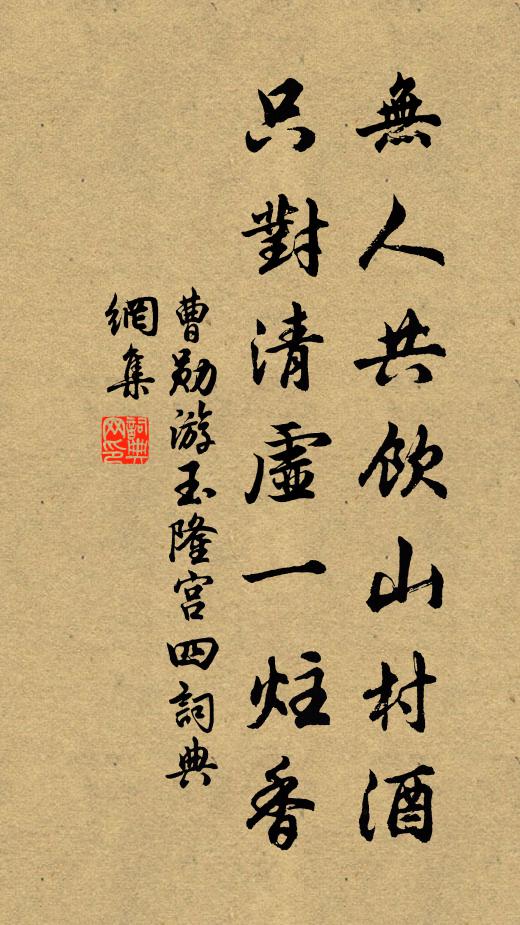 無人共飲山村酒
只對清虛一炷香
曹勛游玉隆宮四詞典
網集
詞典網印